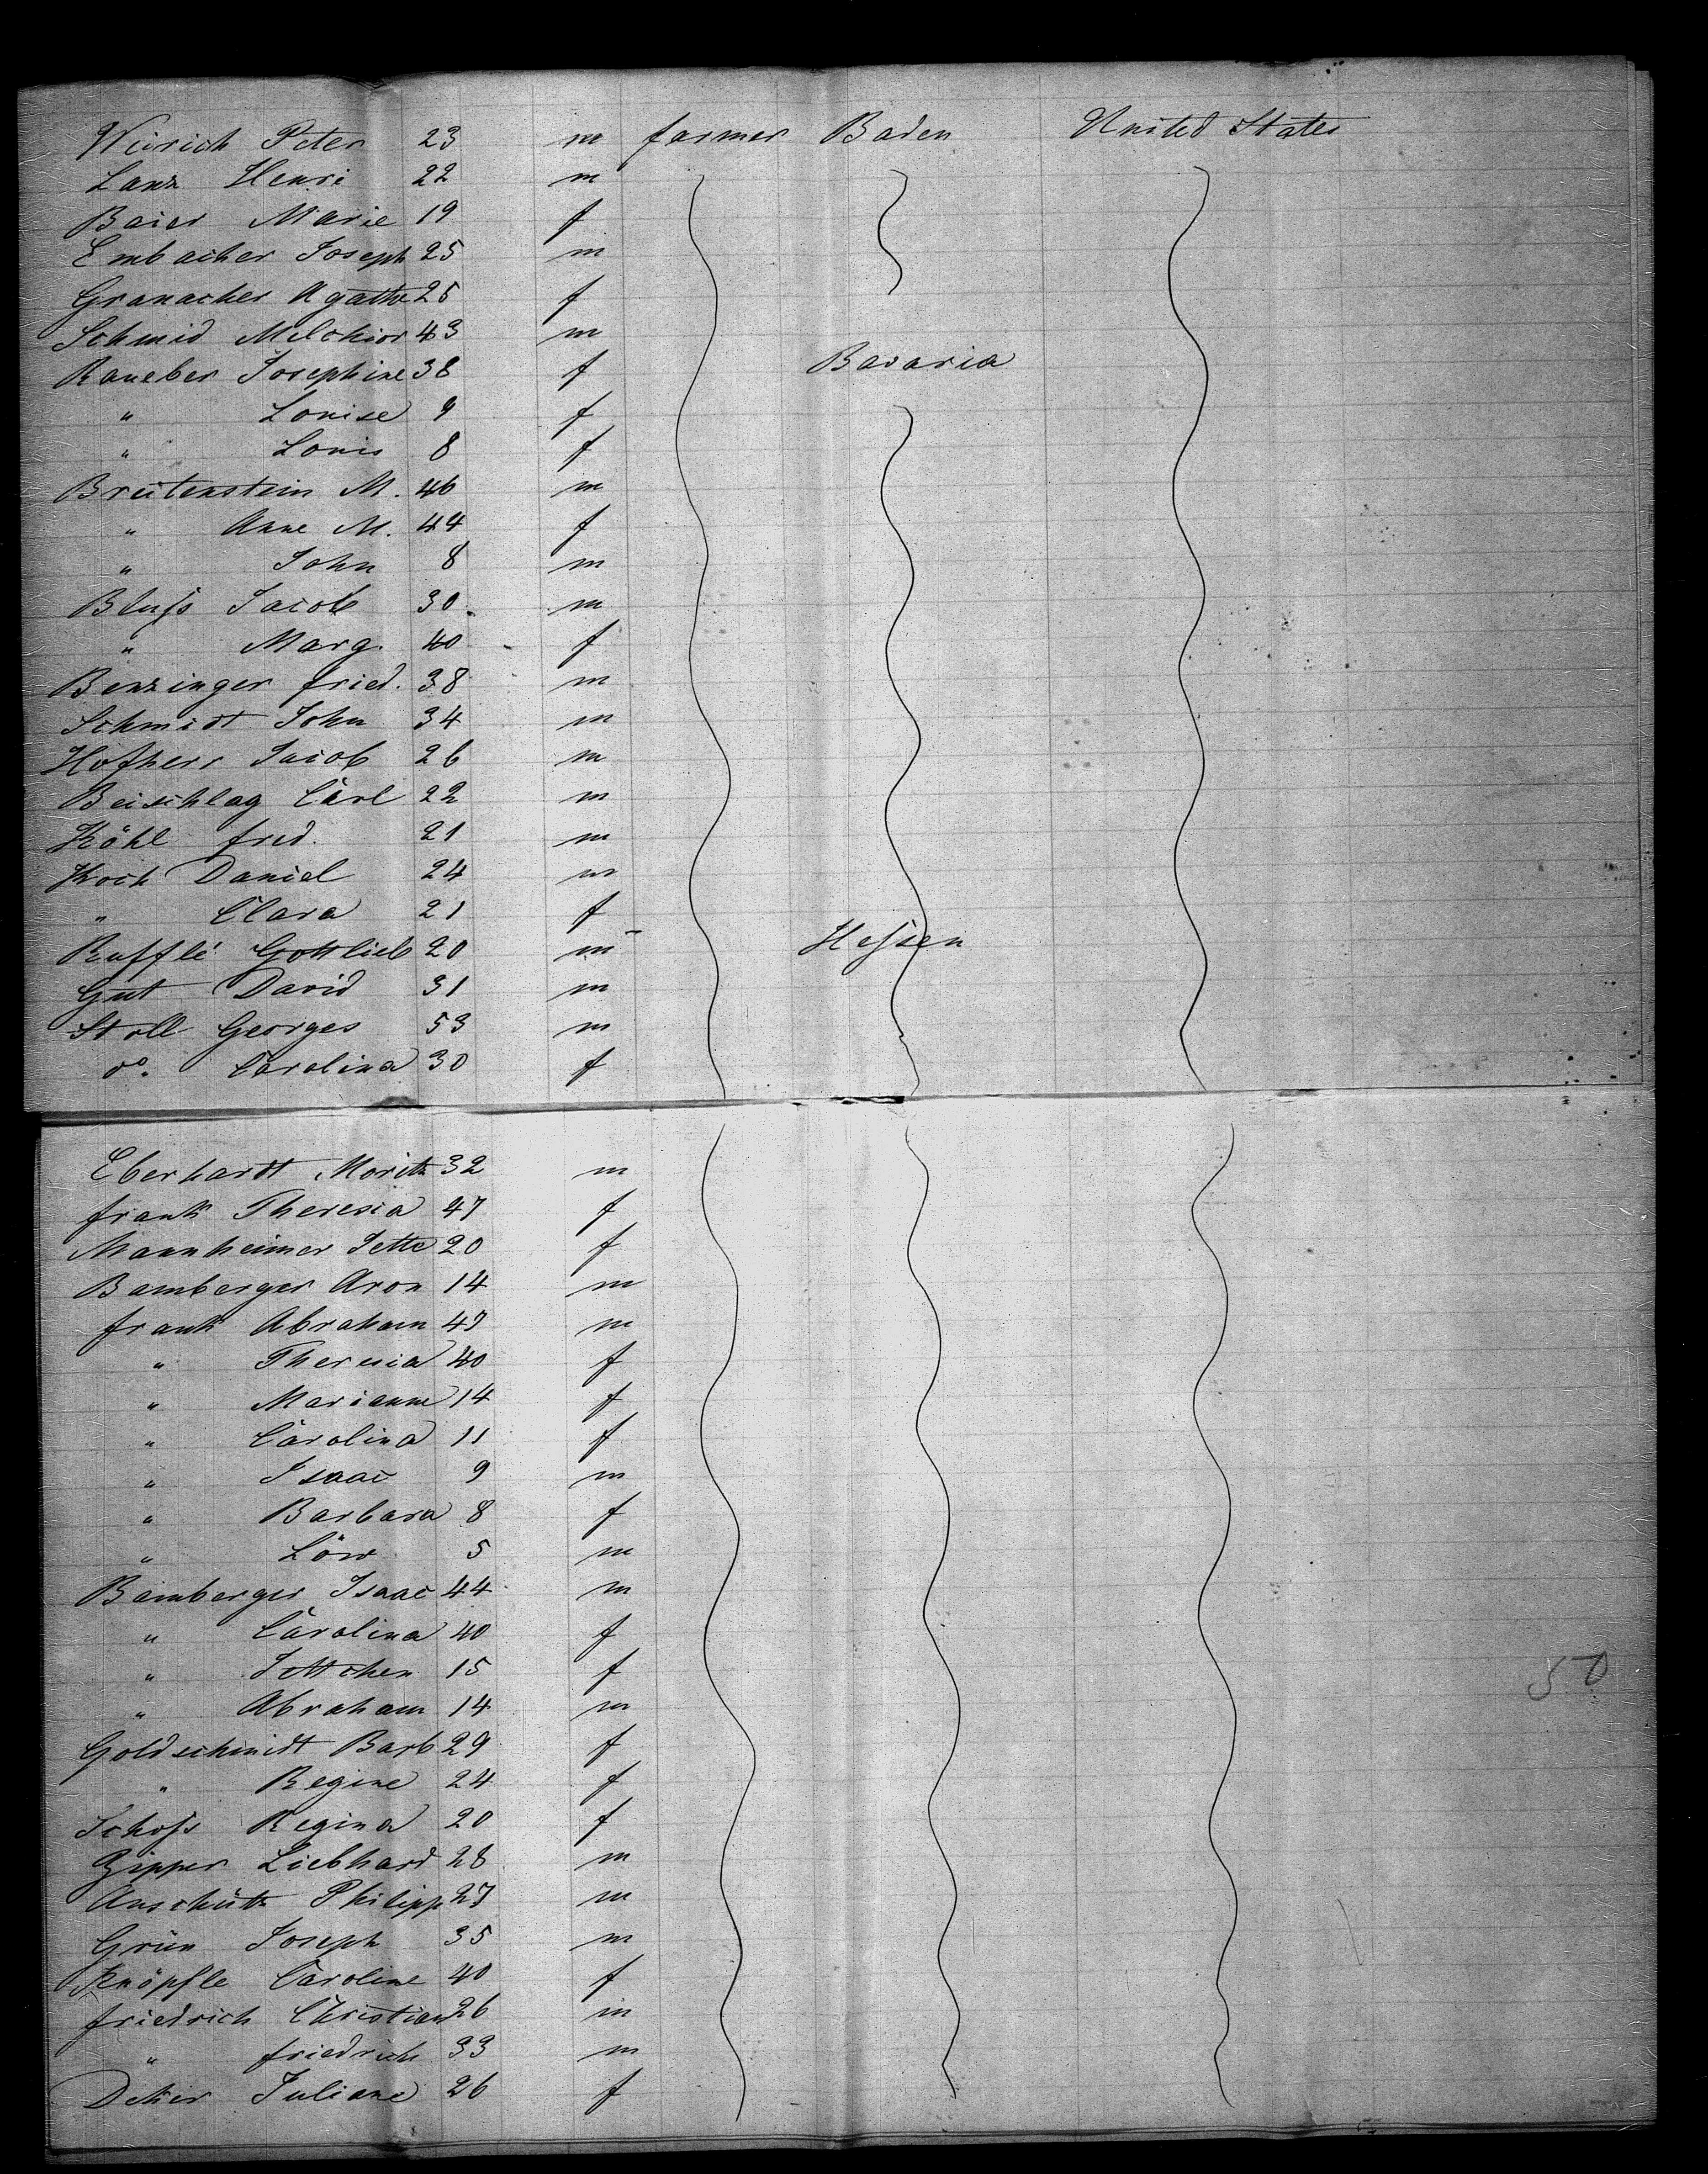 Weirich Peter 23 m farmer Baden United States
Lanz Henri 22 m
Baier Marie 19 f
Embacher Joseph 25 m
Granacher Agathe 25 f
Schmid Melchior 43 m
Raueber Josephine 38 f Bavaria
" Louise 9 f
" Louis 8 f
Breitenstein M. 46 m
" Anne M. 44 f
" John 8 m
Bluss Jacob 30 m
" Marg. 40 f
Benzinger fried. 38 m
Schmidt John 34 m
Hofherr Jacob 26 m
Beischlag Carl 22 m
Köhl fred. 21 m
Koch Daniel 24 m
" Clara 21 f
Gottlieb 20 m Hessen
Gut David 31 m
Stoll Georges 53 m
do. Carolina 30 f
Eberhardt Moritz 32 m
frank Theresia 47 f
Mannheimer Jette 20 f
Bamberger Aron 14 m
frank Abraham 47 m
" Theresia 40 f
" Marianne 14 f
" Carolina 11 f
" Isaac 9 m
" Barbara 8 f
" Löw 5 m
Bamberger Isaac 44 m
" Carolina 40 f
" Jettchen 15 f
" Abraham 14 m
Goldschmidt Barb. 29 f
" Regine 24 f
Schoss Regina 20 f
Zipper Liebhard 28 m
Anschütz Philipp 27 m
Grün Joseph 35 m
Knöpfle Caroline 40 f
friedrich Christian 26 m
" friedrich 33 m
Deker Juliane 26 f
50